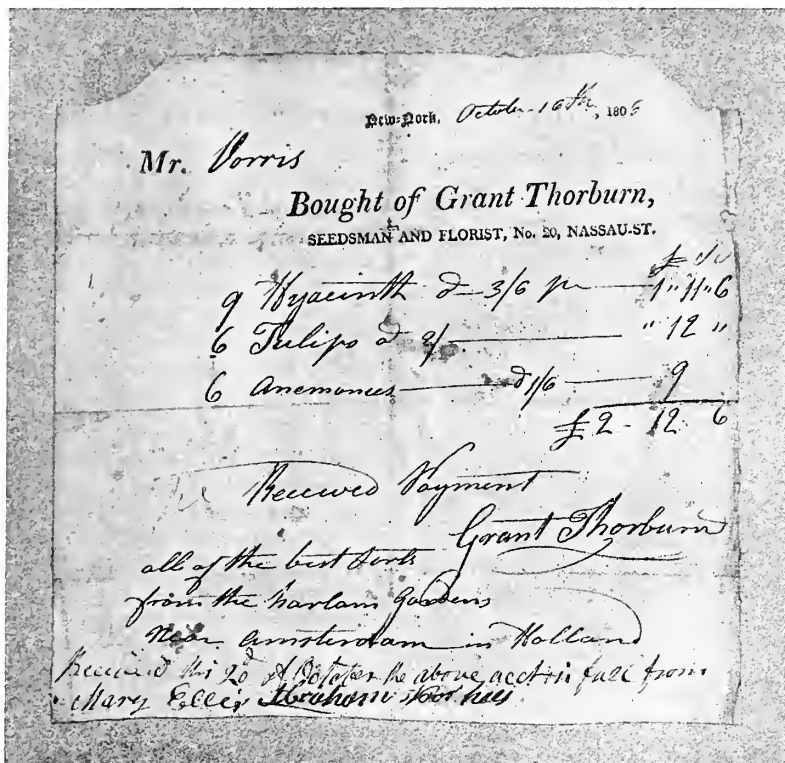 New-York, October 16th, 1805
Mr. Vorris
Bought of Grant Thorburn,
SEEDSMAN AND FLORIST, No. 20, NASSAU-ST.
£
9 Hyacinth @ 3/6 pr 1 " 11 " 6
6 Tulips @ 2/ " 12 "
6 Anemones @ 1/6 9
£ 2 - 12 6
Received Payment
Grant Thorburn
all of the best sorts
from the harlam Gardens
Near amsterdam in Holland
Received this 2d of October the above acct in full from
Mary Ellis Abraham Voorhees